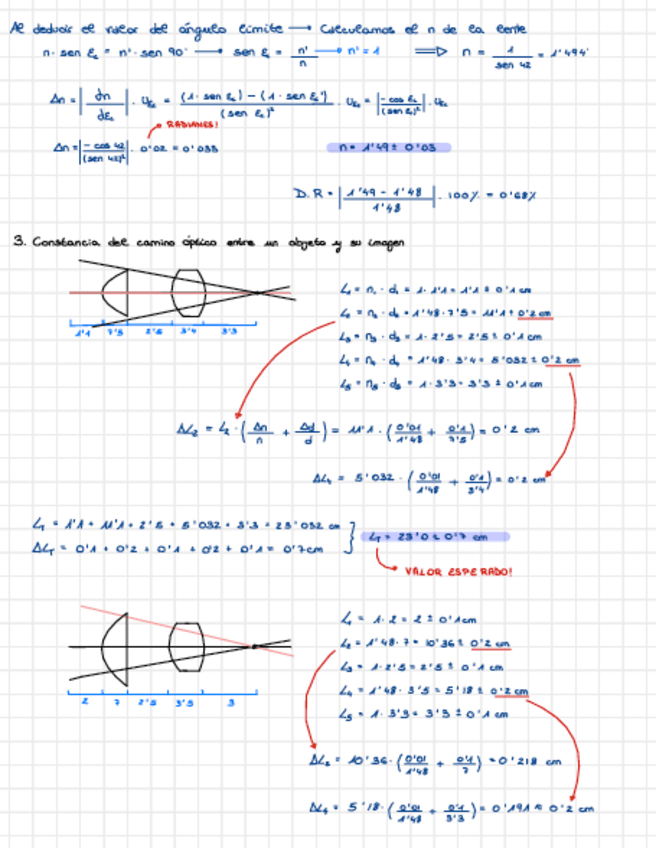 Al deducir el valor del ángulo límite → Calculamos el n de la lente
n · sen ε_L = n' · sen 90° → sen ε_L = n'/n → n' = 1 ⇒ n = 1/sen 42 = 1'494
Δn = |dn/dε_L| · u_εL = (1 · sen ε_L) - (1 · sen ε_L')/(sen ε_L)² · u_εL = |-cos ε_L/(sen ε_L)²| · u_εL
RADIANES!
Δn = |-cos 42/(sen 42)²| · 0'02 = 0'033
n = 1'49 ± 0'03
D.R = |1'49 - 1'48/1'48| · 100% = 0'68%
3. Constancia del camino óptico entre un objeto y su imagen
L₁ = n₁ · d₁ = 1 · 1'1 = 1'1 ± 0'1 cm
L₂ = n₂ · d₂ = 1'48 · 7'5 = 11'1 ± 0'2 cm
L₃ = n₃ · d₃ = 1 · 2'5 = 2'5 ± 0'1 cm
L₄ = n₄ · d₄ = 1'48 · 3'4 = 5'032 ± 0'2 cm
L₅ = n₅ · d₅ = 1 · 3'3 = 3'3 ± 0'1 cm
1'1 7'5 2'5 3'4 3'3
ΔL₂ = L₂ · (Δn/n + Δd/d) = 11'1 · (0'01/1'48 + 0'1/7'5) = 0'2 cm
ΔL₄ = 5'032 · (0'01/1'48 + 0'1/3'4) = 0'2 cm
L_T = 1'1 + 11'1 + 2'5 + 5'032 + 3'3 = 23'032 cm
ΔL_T = 0'1 + 0'2 + 0'1 + 0'2 + 0'1 = 0'7 cm
L_T = 23'0 ± 0'7 cm
VALOR ESPERADO!
L₁ = 1 · 2 = 2 ± 0'1 cm
L₂ = 1'48 · 7 = 10'36 ± 0'2 cm
L₃ = 1 · 2'5 = 2'5 ± 0'1 cm
L₄ = 1'48 · 3'5 = 5'18 ± 0'2 cm
L₅ = 1 · 3'3 = 3'3 ± 0'1 cm
2 7 2'5 3'5 3
ΔL₂ = 10'36 · (0'01/1'48 + 0'1/7) = 0'218 cm
ΔL₄ = 5'18 · (0'01/1'48 + 0'1/3'3) = 0'191 ≈ 0'2 cm